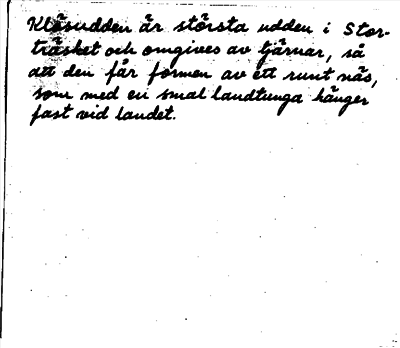 Klåsudden är största udden i Stor-
träsket och omgives av tjärnar, så
att den får formen av ett runt näs,
som med en smal landtunga hänger
fast vid landet.